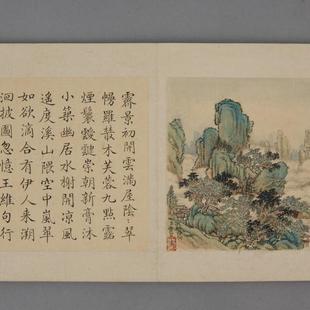 霽景初開雲滿屋陰〻翠
幔羅散木芙蓉九點露
煙鬟靉靆崇朝新膏沐
小築幽居水榭開涼風
遙度溪山隈空中嵐翠
如欲滴合有伊人來溯
洄披圖忽憶王維句行